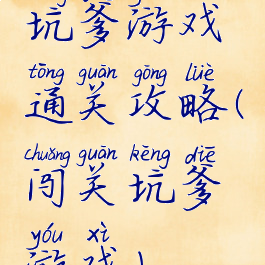 坑爹游戏
tōng guān gōng lüè
通关攻略(
chuǎng guān kēng diē
闯关坑爹
yóu xì
游戏)